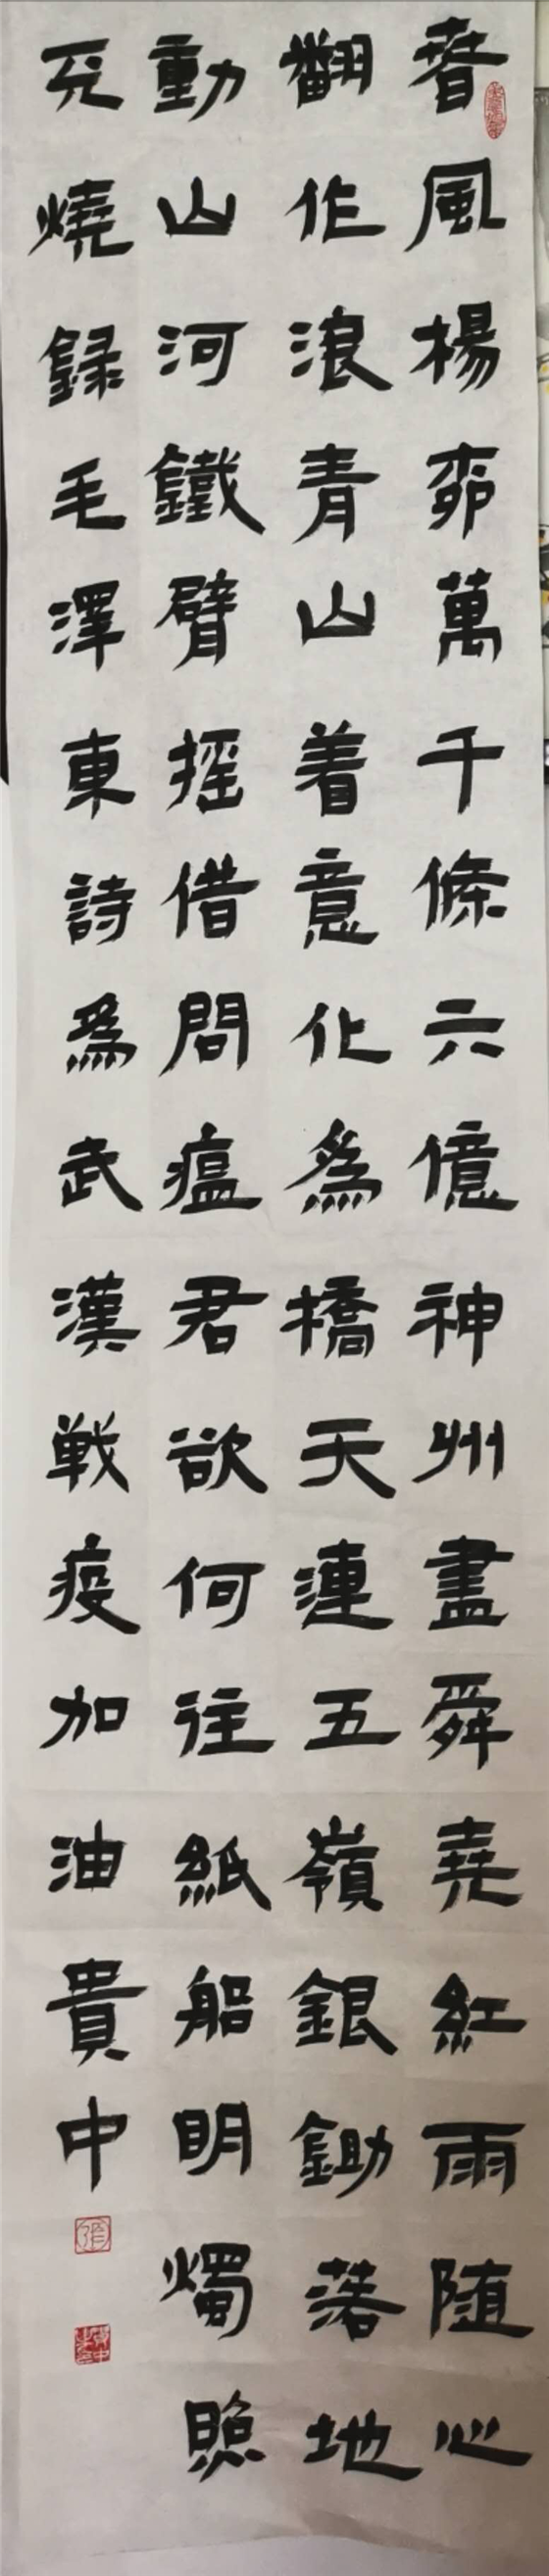 春風楊柳萬千條六億神州盡舜堯紅雨随心
翻作浪青山着意化為橋天連五嶺銀鋤落地
動山河鐵臂摇借問瘟君欲何往紙船明燭照
天燒録毛澤東詩爲武漢戦疫加油貴中